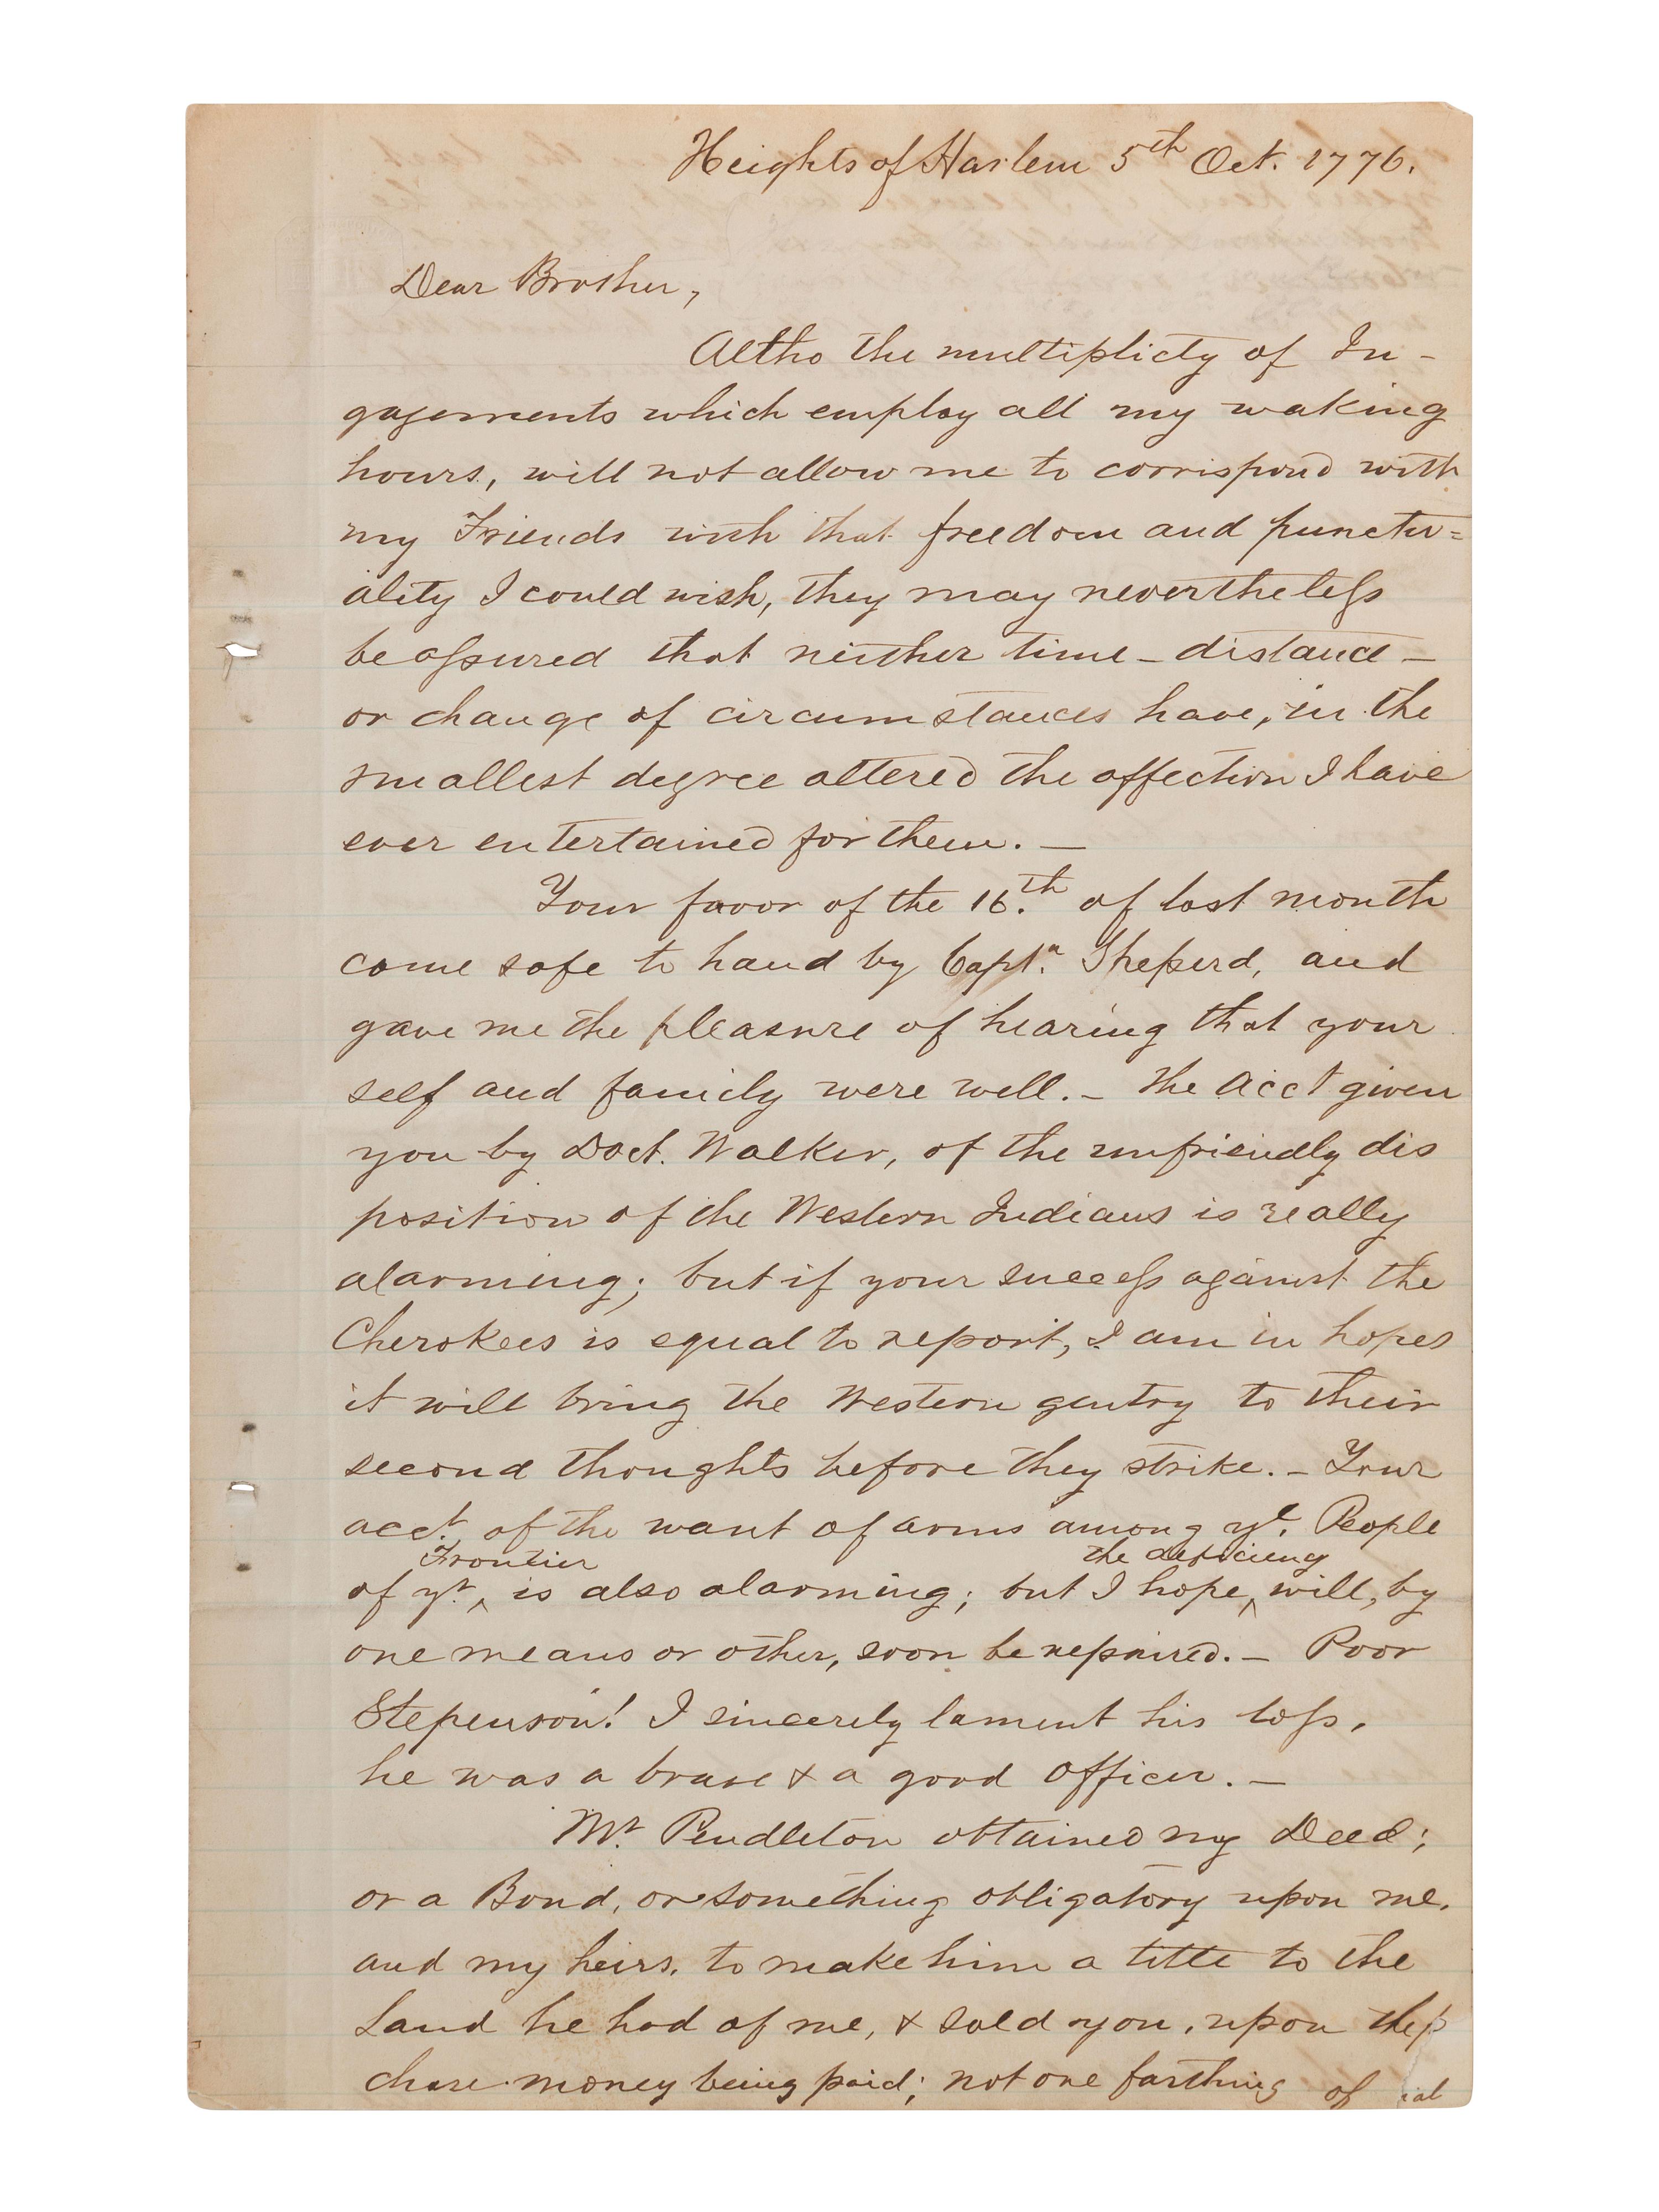 Heights of Harlem 5th Oct. 1776.
Dear Brother,
Altho the multiplicty of In-
gagements which employ all my waking
hours, will not allow me to corrispond with
my Friends with that freedom and punctu=
ality I could wish, they may nevertheless
be assured that neither time - distance -
or change of circumstances have, in the
smallest degree altered the affection I have
ever entertained for them. —
Your favor of the 16.th of last month
came safe to hand by Captn. Sheperd, and
gave me the pleasure of hearing that your
self and family were well. - The Acct given
you by Doct. Walker, of the unfriendly dis
position of the Western Indians is really
alarming; but if your success against the
Cherokees is equal to report, I am in hopes
it will bring the Western gentry to their
second thoughts before they strike. - Your
acct. of the want of arms among ye. People
of yr. ^ Frontier is also alarming; but I hope ^ the deficiency will, by
one means or other, soon be repaired. - Poor
Stepenson! I sincerely lament his loss,
he was a brave & a good officer. —
Mr. Pendleton obtained my Deed;
or a Bond, or something obligatory upon me,
and my heirs, to make him a title to the
Land he had of me, & sold you, upon the p
chase money being paid; not one farthing of